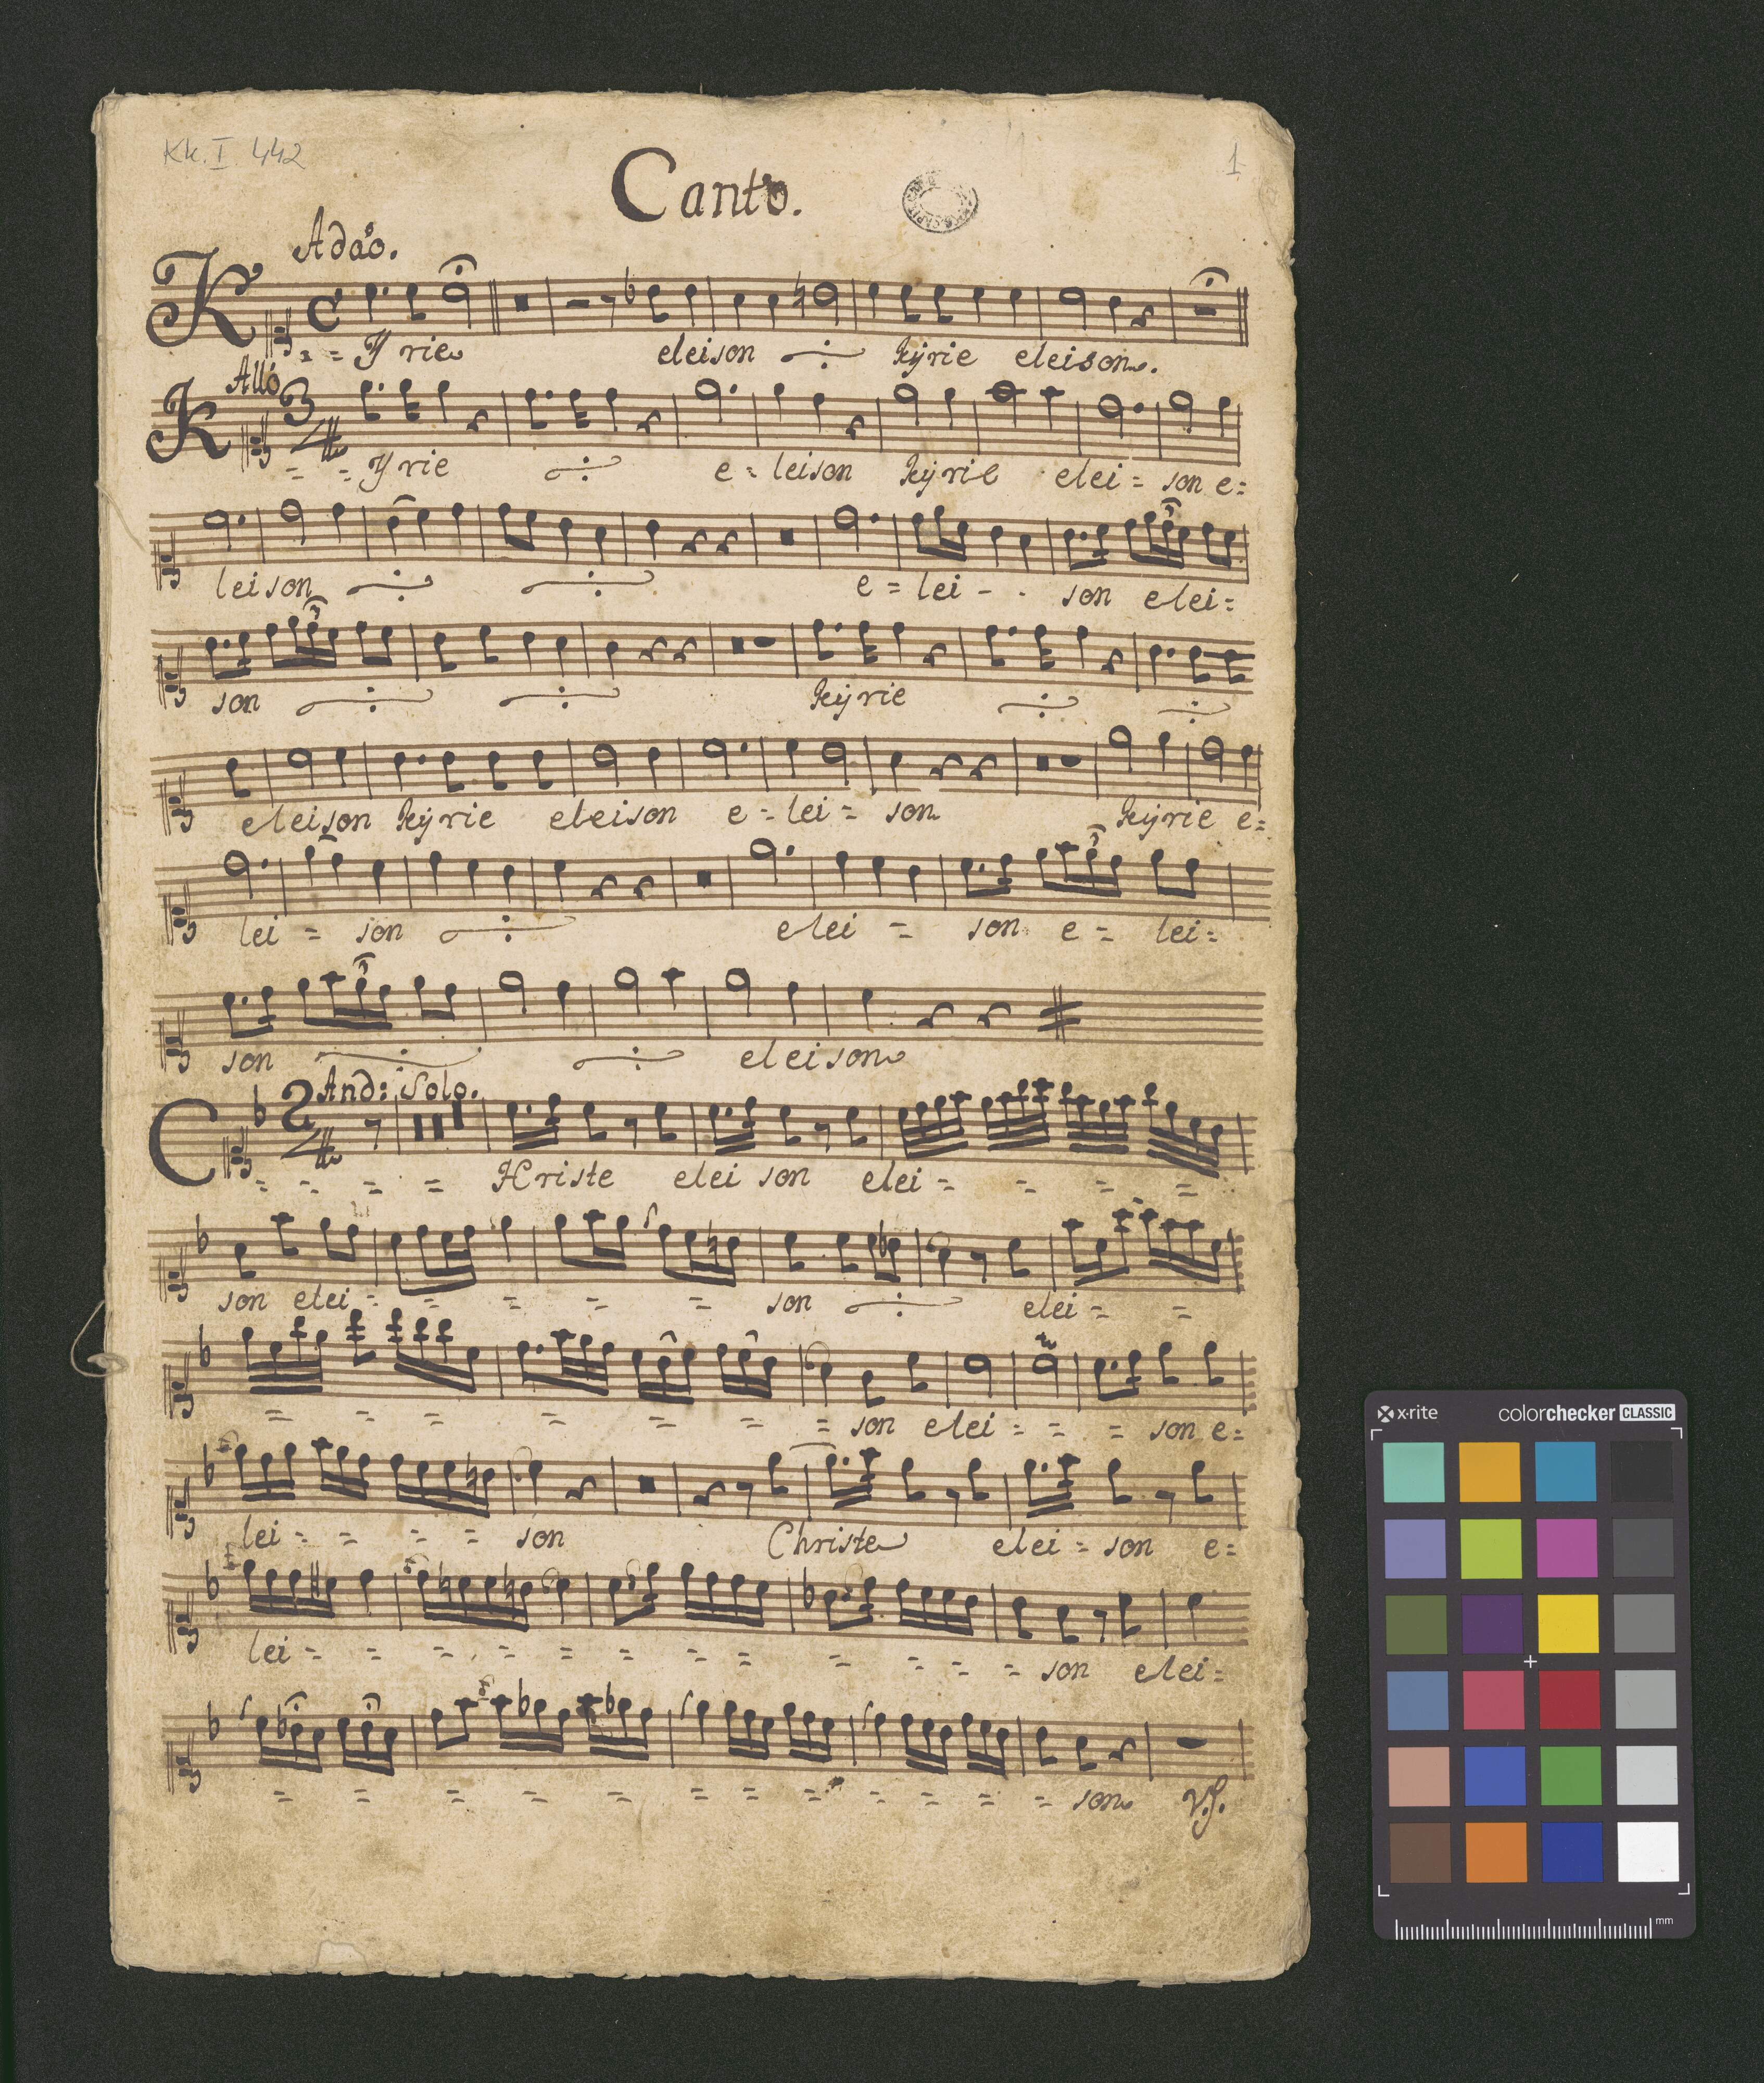 Kk. I. 442
1
Canto.
Adaº.
K = = Yrie eleison kÿrie eleison.
Allº
3/4
K = = Yrie e = leison kÿrie elei = son e =
leison e = lei - - son elei =
son kÿrie
eleison kÿrie eleison e = lei = son kÿrie e =
lei = son elei = son e = lei =
son eleison
And: Solo.
2/4
C = = = = Hriste elei son elei = = = =
son elei = = = = = son elei = =
= = = = = = = son elei = = = son e =
lei = = = = son Christe elei = son e =
lei = = = = = = = = = = = = son elei =
= = = = = = = = = = = = son V.S.
x·rite
colorchecker CLASSIC
mm